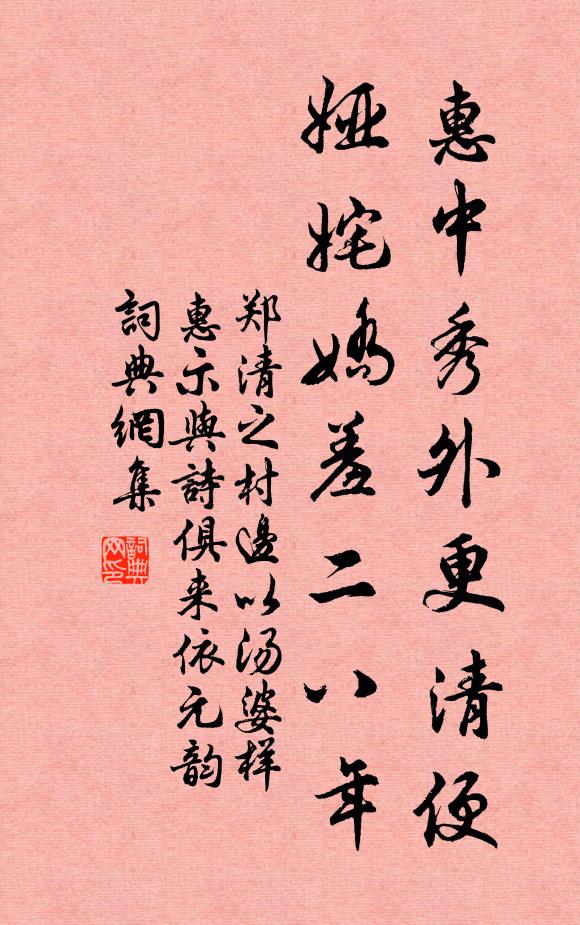 惠中秀外更清便
婭姹嬌羞二八年
郑清之村邊以汤婆样
惠示與詩俱来依元韵
詞典網集
詞典网印